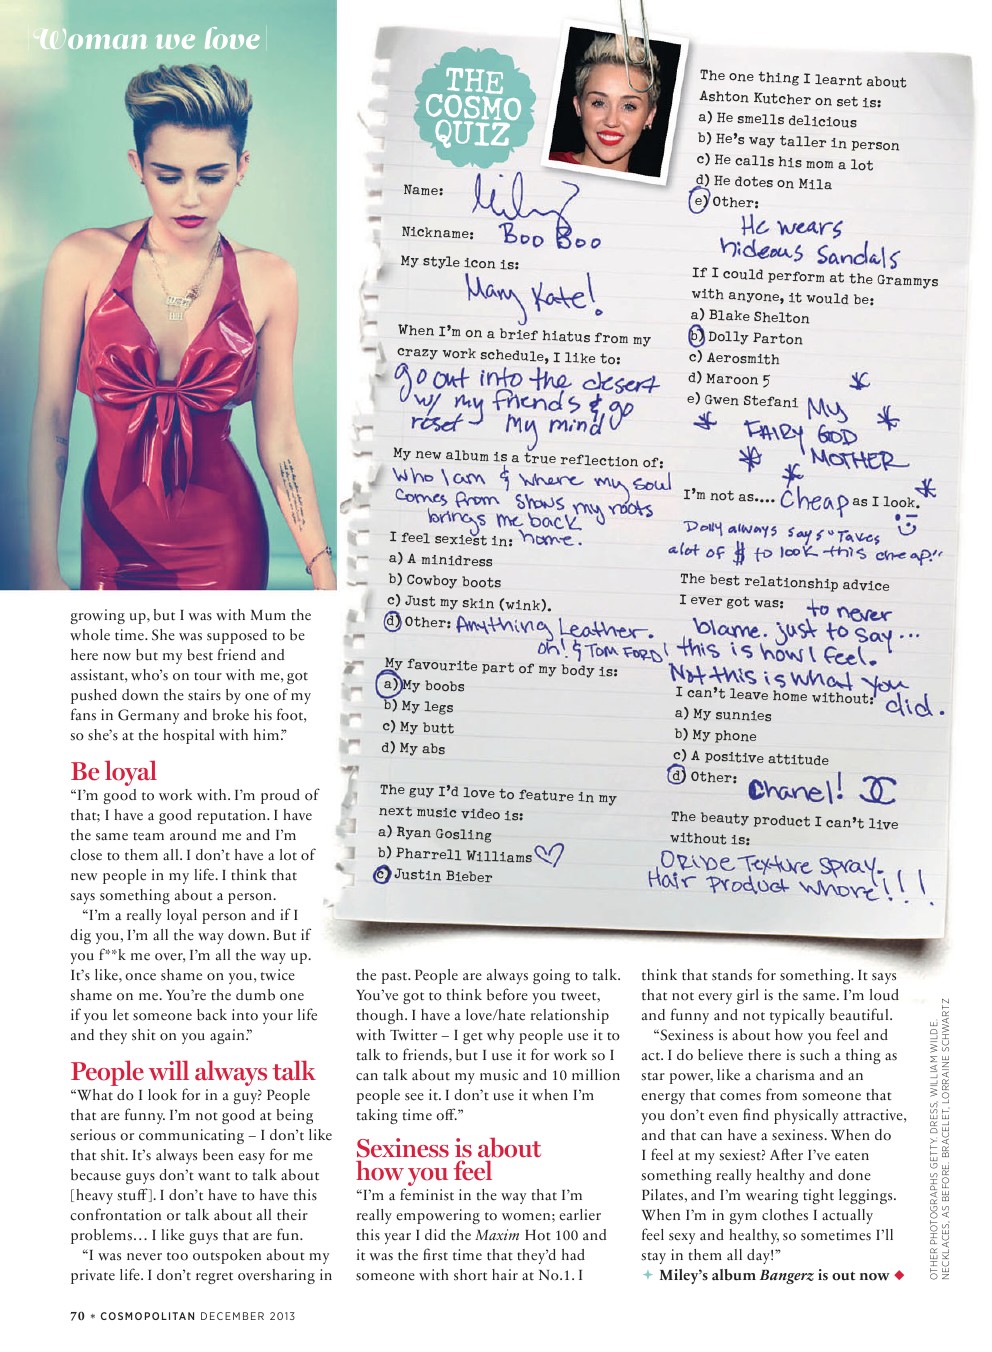 Woman we love
THE
COSMO
QUIZ
Name: Miley
Nickname: Boo Boo
My style icon is:
Mary Kate!
When I'm on a brief hiatus from my
crazy work schedule, I like to:
go out into the desert
w/ my friends & go
reset my mind
My new album is a true reflection of:
who I am & where my soul
comes from shows my roots
brings me back
I feel sexiest in: home.
a) A minidress
b) Cowboy boots
c) Just my skin (wink).
d) Other: Anything Leather.
oh! & TOM FORD!
My favourite part of my body is:
a) My boobs
b) My legs
c) My butt
d) My abs
The guy I'd love to feature in my
next music video is:
a) Ryan Gosling
b) Pharrell Williams
c) Justin Bieber
The one thing I learnt about
Ashton Kutcher on set is:
a) He smells delicious
b) He's way taller in person
c) He calls his mom a lot
d) He dotes on Mila
e) Other:
He wears
hideous sandals
If I could perform at the Grammys
with anyone, it would be:
a) Blake Shelton
b) Dolly Parton
c) Aerosmith
d) Maroon 5
e) Gwen Stefani
My
FAIRY GOD
MOTHER
I'm not as.... cheap as I look.
Dolly always says "Takes
alot of $ to look this cheap!"
The best relationship advice
I ever got was: to never
blame. just to say...
this is how I feel.
Not this is what you
did.
I can't leave home without:
a) My sunnies
b) My phone
c) A positive attitude
d) Other: Chanel!
The beauty product I can't live
without is:
Oribe Texture Spray.
Hair Product Whore!!!
growing up, but I was with Mum the
whole time. She was supposed to be
here now but my best friend and
assistant, who's on tour with me, got
pushed down the stairs by one of my
fans in Germany and broke his foot,
so she's at the hospital with him."
Be loyal
"I'm good to work with. I'm proud of
that; I have a good reputation. I have
the same team around me and I'm
close to them all. I don't have a lot of
new people in my life. I think that
says something about a person.
"I'm a really loyal person and if I
dig you, I'm all the way down. But if
you f**k me over, I'm all the way up.
It's like, once shame on you, twice
shame on me. You're the dumb one
if you let someone back into your life
and they shit on you again."
People will always talk
"What do I look for in a guy? People
that are funny. I'm not good at being
serious or communicating – I don't like
that shit. It's always been easy for me
because guys don't want to talk about
[heavy stuff]. I don't have to have this
confrontation or talk about all their
problems... I like guys that are fun.
"I was never too outspoken about my
private life. I don't regret oversharing in
the past. People are always going to talk.
You've got to think before you tweet,
though. I have a love/hate relationship
with Twitter – I get why people use it to
talk to friends, but I use it for work so I
can talk about my music and 10 million
people see it. I don't use it when I'm
taking time off."
Sexiness is about
how you feel
"I'm a feminist in the way that I'm
really empowering to women; earlier
this year I did the Maxim Hot 100 and
it was the first time that they'd had
someone with short hair at No.1. I
think that stands for something. It says
that not every girl is the same. I'm loud
and funny and not typically beautiful.
"Sexiness is about how you feel and
act. I do believe there is such a thing as
star power, like a charisma and an
energy that comes from someone that
you don't even find physically attractive,
and that can have a sexiness. When do
I feel at my sexiest? After I've eaten
something really healthy and done
Pilates, and I'm wearing tight leggings.
When I'm in gym clothes I actually
feel sexy and healthy, so sometimes I'll
stay in them all day!"
+ Miley's album Bangerz is out now
OTHER PHOTOGRAPHS GETTY. DRESS, WILLIAM WILDE.
NECKLACES, AS BEFORE. BRACELET, LORRAINE SCHWARTZ
70 * COSMOPOLITAN DECEMBER 2013